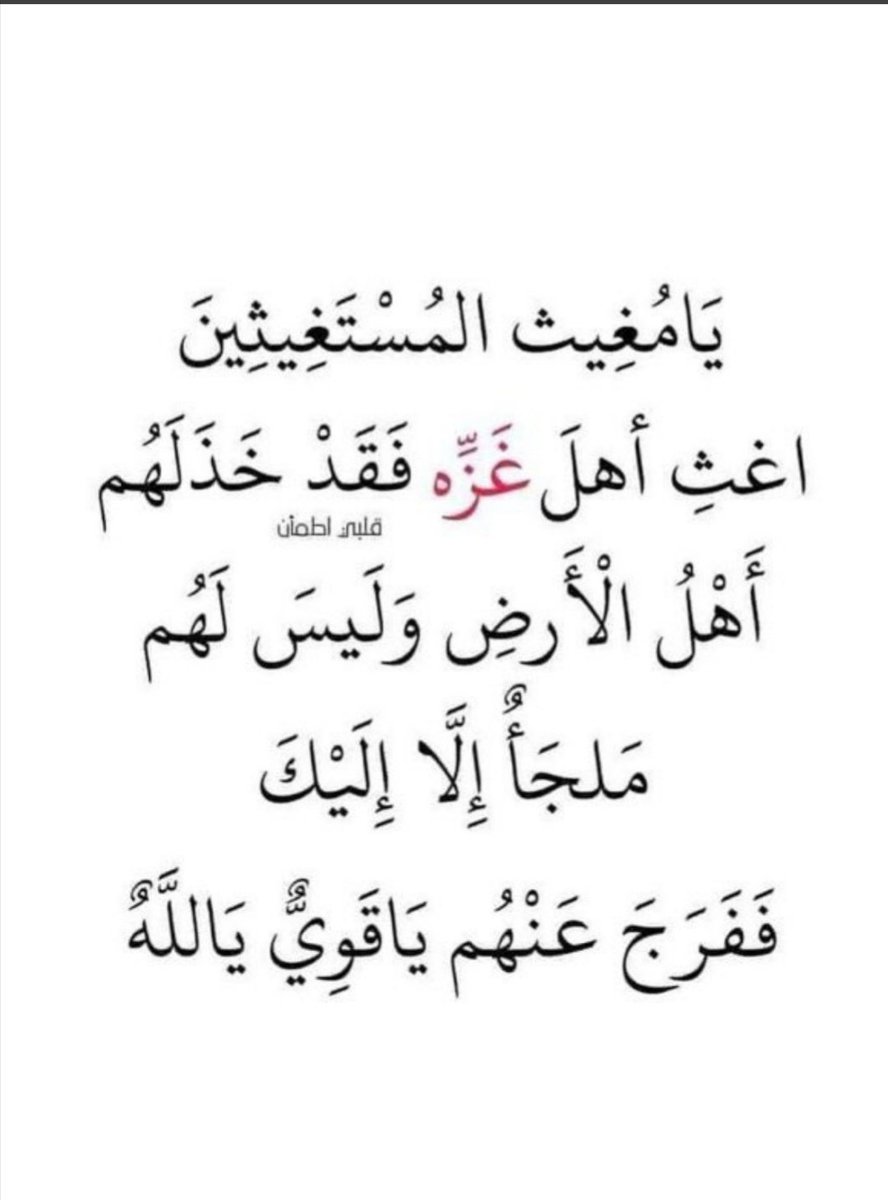 يَامُغِيث المُسْتَغِيثِينَ
اغثِ أهلَ غَزِّه فَقَدْ خَذَلَهُم
قلبي اطمأن
أَهْلُ الْأَرضِ وَلَيسَ لَهُم
مَلجَأٌ إِلَّا إِلَيْكَ
فَفَرَجَ عَنْهُم يَاقَوِيٌّ يَاللَّهٌ